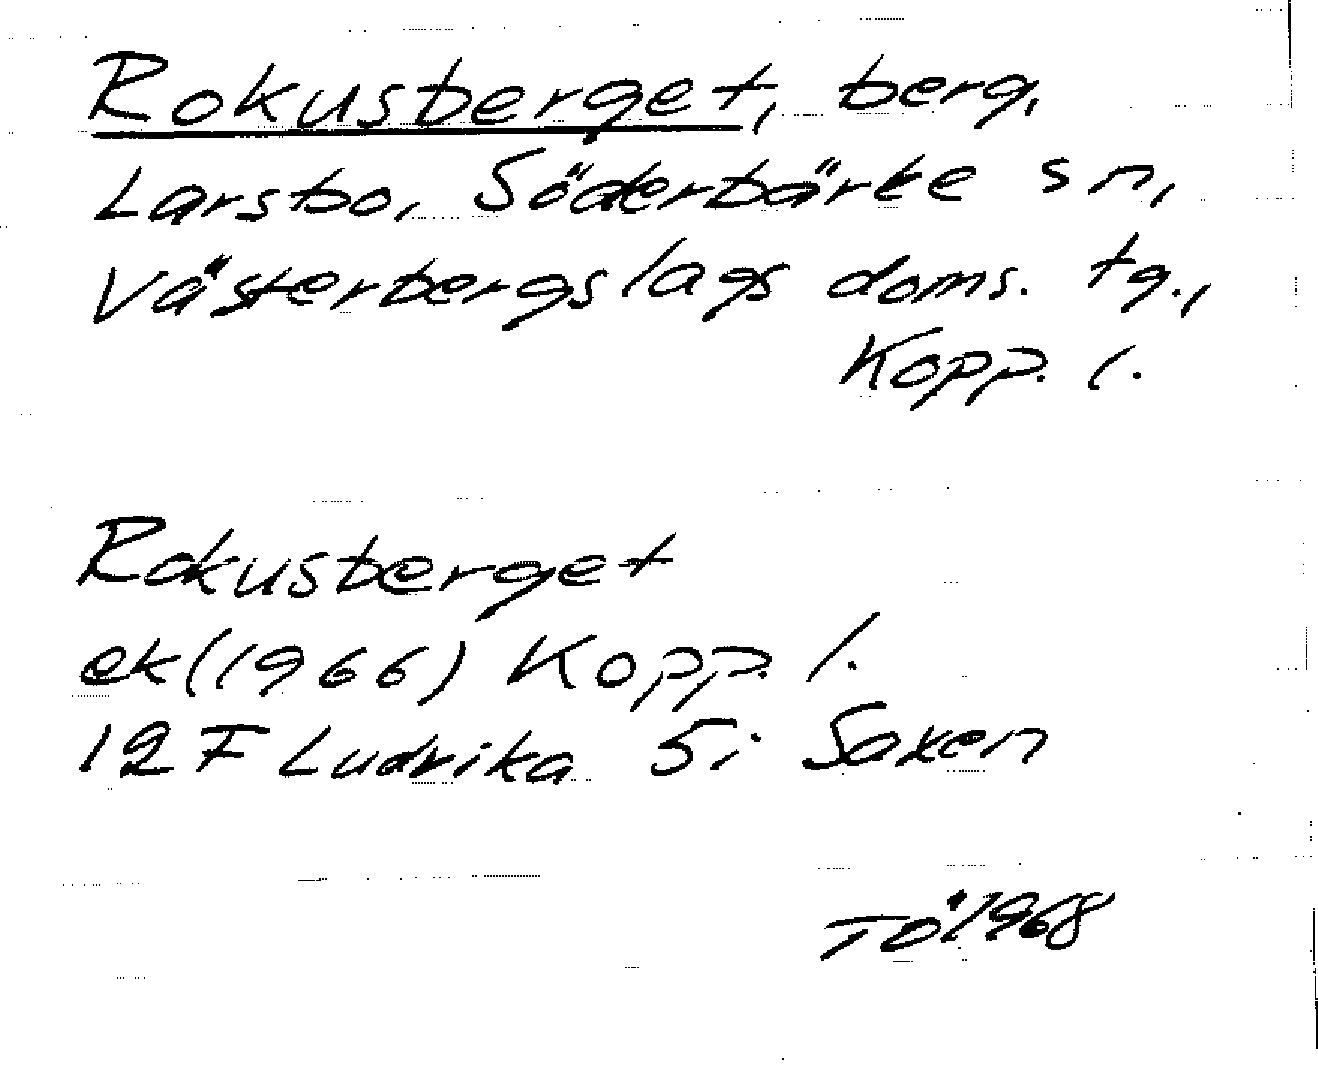 Rokusberget, berg,
Larsbo, Söderbärke sn,
Västerbergslags doms. tg.,
Kopp. l.
Rokusberget
ek (1966) Kopp. l.
12 F Ludvika 5i Saxen
TÖ 1968